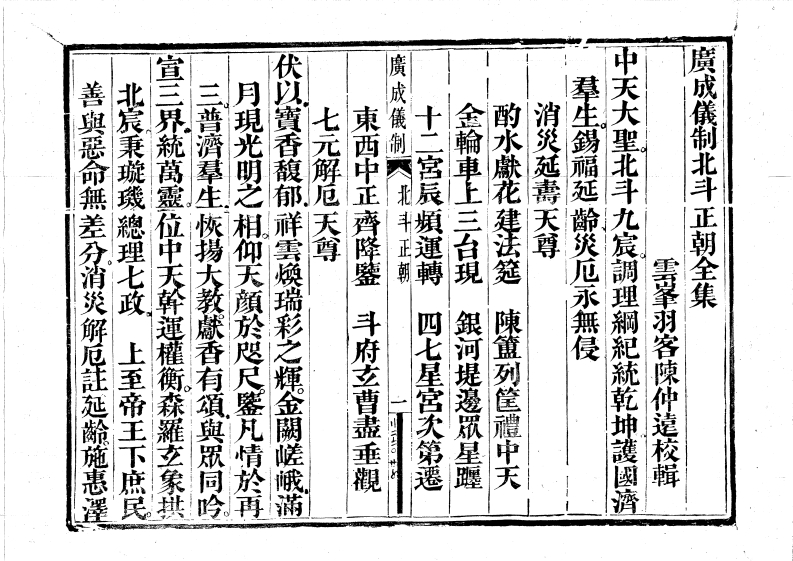 廣成儀制北斗正朝全集
雲峯羽客陳仲遠校輯
中天大聖北斗九宸調理綱紀統乾坤護國濟
羣生錫福延齡災厄永無侵
消災延壽天尊
酌水獻花建法筵　陳簠列筐禮中天
金輪車上三台現　銀河堤邊眾星躔
十二宮辰頻運轉　四七星宮次第遷
東西中正齊降鑒　斗府玄曹盡垂觀
七元解厄天尊
廣成儀制　北斗正朝　一
伏以寶香馥郁祥雲煥瑞彩之輝金闕嵯峨滿
月現光明之相仰天顏於咫尺鑒凡情於再
三普濟羣生恢揚大教獻香有頌與眾同吟
宣三界統萬靈位中天幹運權衡森羅玄象拱
北宸秉璇璣總理七政　上至帝王下庶民
善與惡命無差分消災解厄註延齡施惠澤